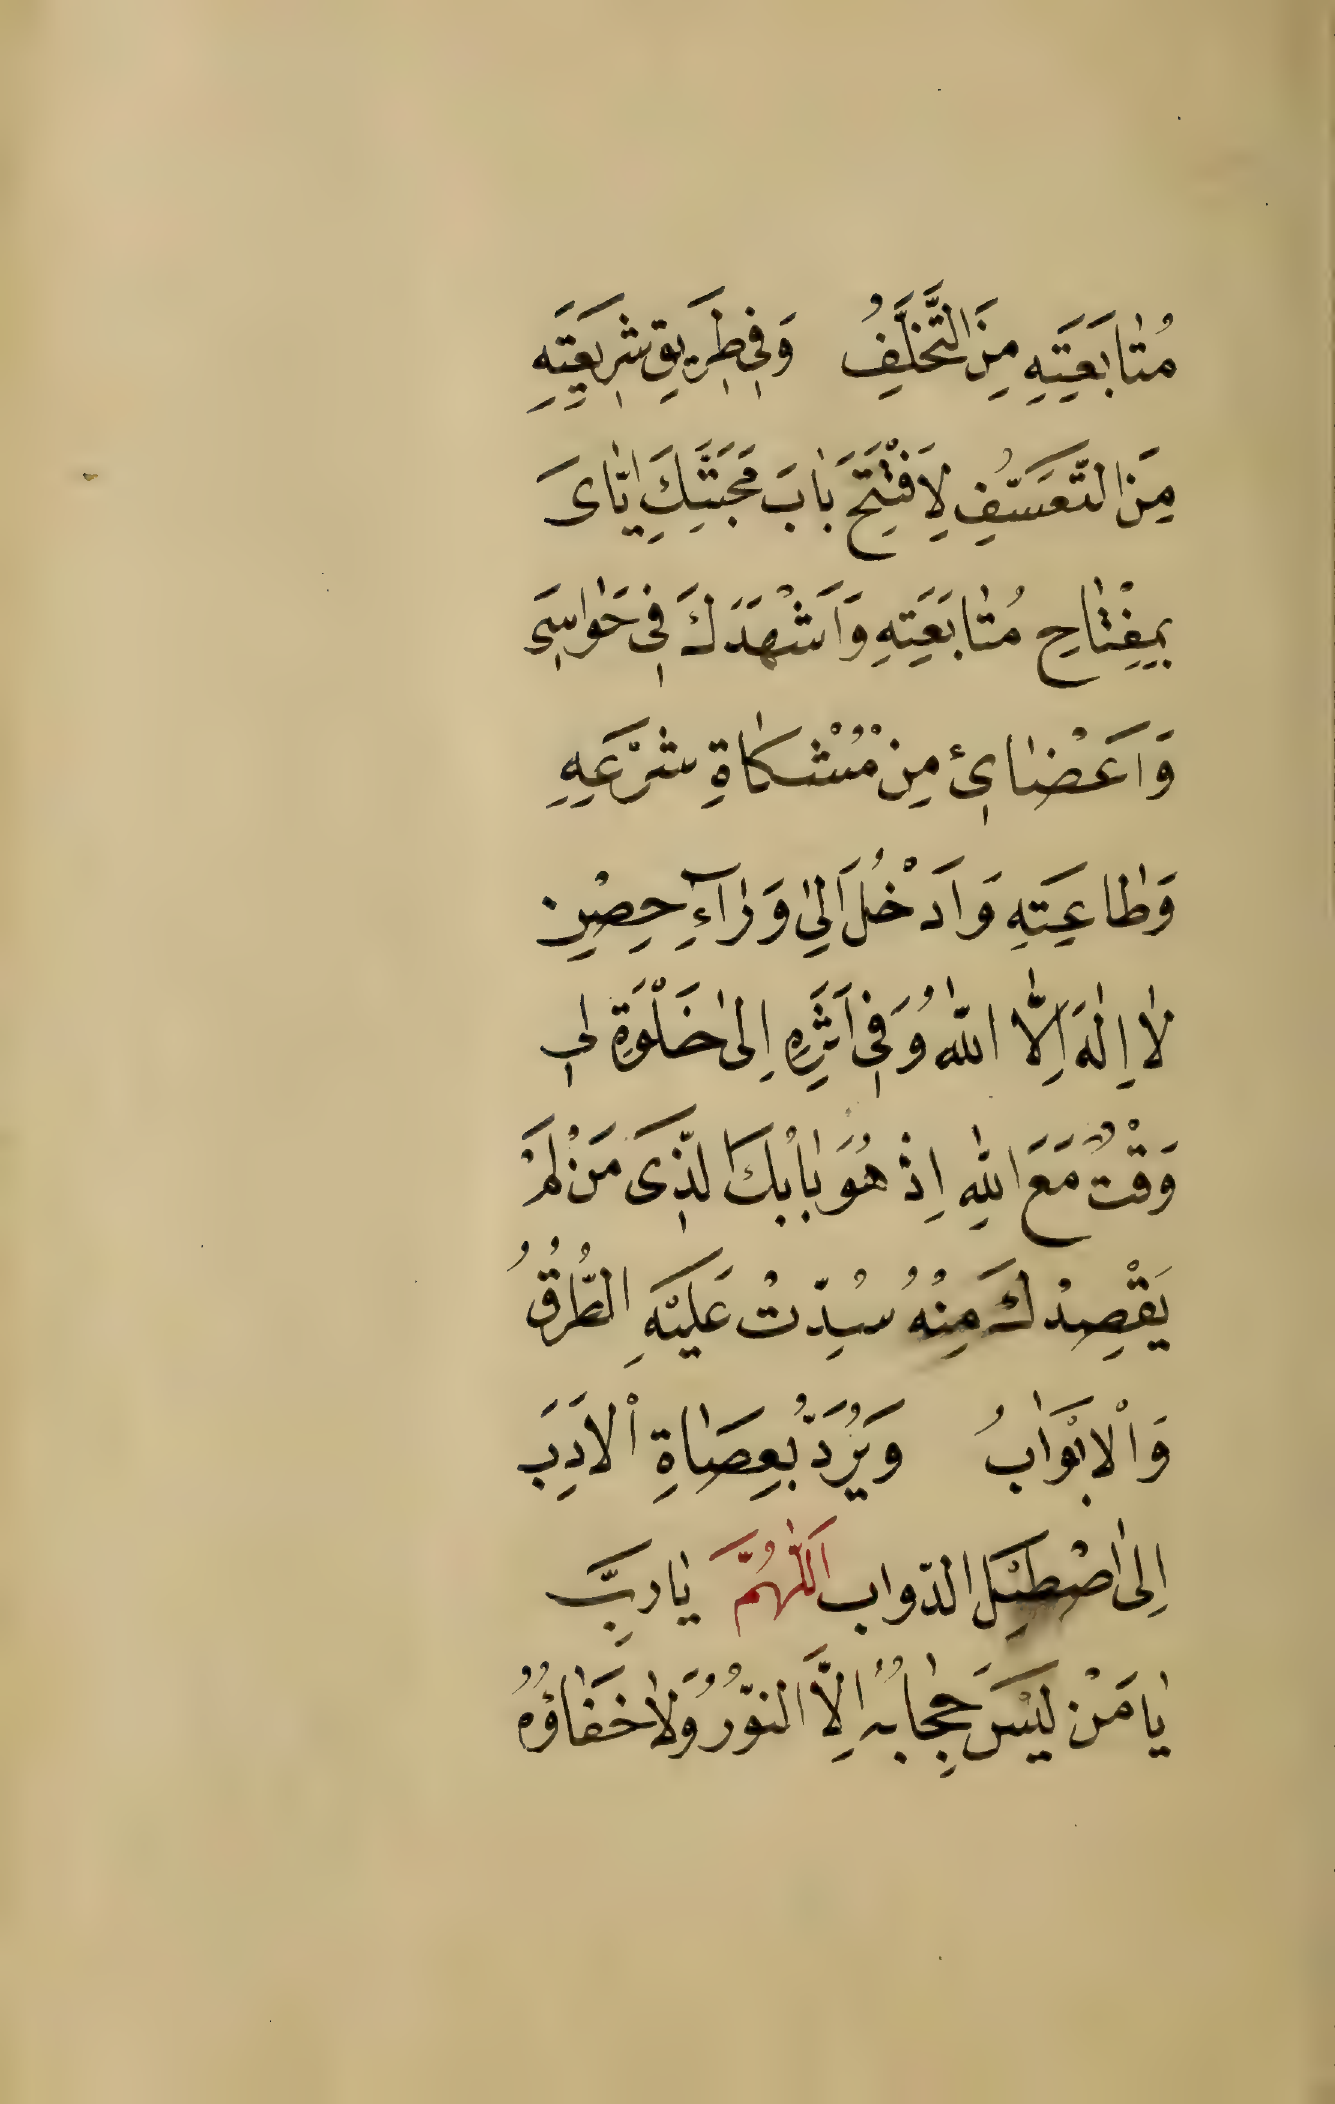 مُتَابَعَتِهِ مِنَ التَّخَلُّفِ وَفِي طَرِيقِ شَرِيعَتِهِ
مِنَ التَّعَسُّفِ لِاَفْتَتِحَ بَابَ مَحَبَّتِكَ اِيَّاىَ
بِمِفْتَاحِ مُتَابَعَتِهِ وَاَشْهَدَكَ فِي حَوَاسِّى
وَاَعْضَائِ مِنْ مُشْكَاةِ شَرْعِهِ
وَطَاعَتِهِ وَاَدْخُلَ اِلٰى وَرَآءِ حِصْنِ
لَا اِلٰهَ اِلَّا اللّٰهُ وَفِي اَثَرِهِ اِلٰى خَلْوَةِ لِي
وَقْتٌ مَعَ اللّٰهِ اِذْ هُوَ بَابُكَ الَّذِى مَنْ لَمْ
يَقْصِدْكَ مِنْهُ سُدَّتْ عَلَيْهِ الطُّرُقُ
وَالْاَبْوَابُ وَيُرَدُّ بِعَصَاةِ الْاَدَبِ
اِلٰى اصْطَبْلِ الدّوابِ اَللّٰهُمَّ يَا رَبِّ
يَا مَنْ لَيْسَ حِجَابُهُ اِلَّا النُّورُ وَلَا خَفَاؤُهُ